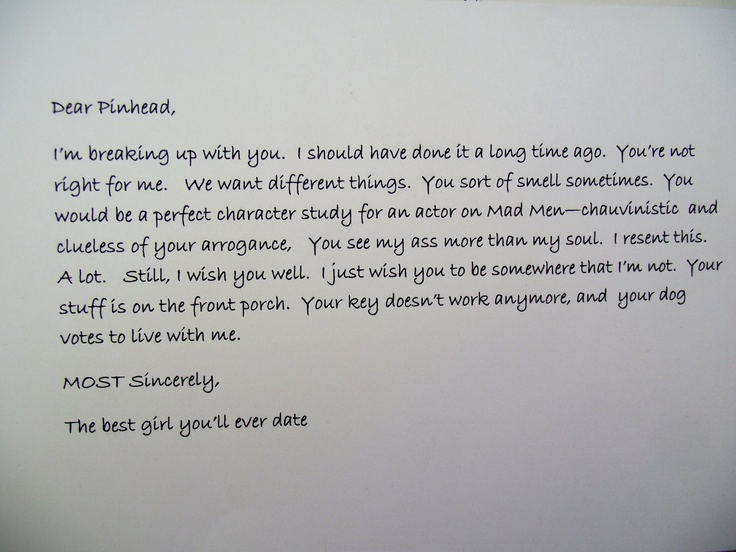 Dear Pinhead,
I'm breaking up with you. I should have done it a long time ago. You're not
right for me. We want different things. You sort of smell sometimes. You
would be a perfect character study for an actor on Mad Men—chauvinistic and
clueless of your arrogance, You see my ass more than my soul. I resent this.
A lot. Still, I wish you well. I just wish you to be somewhere that I'm not. Your
stuff is on the front porch. Your key doesn't work anymore, and your dog
votes to live with me.
MOST Sincerely,
The best girl you'll ever date